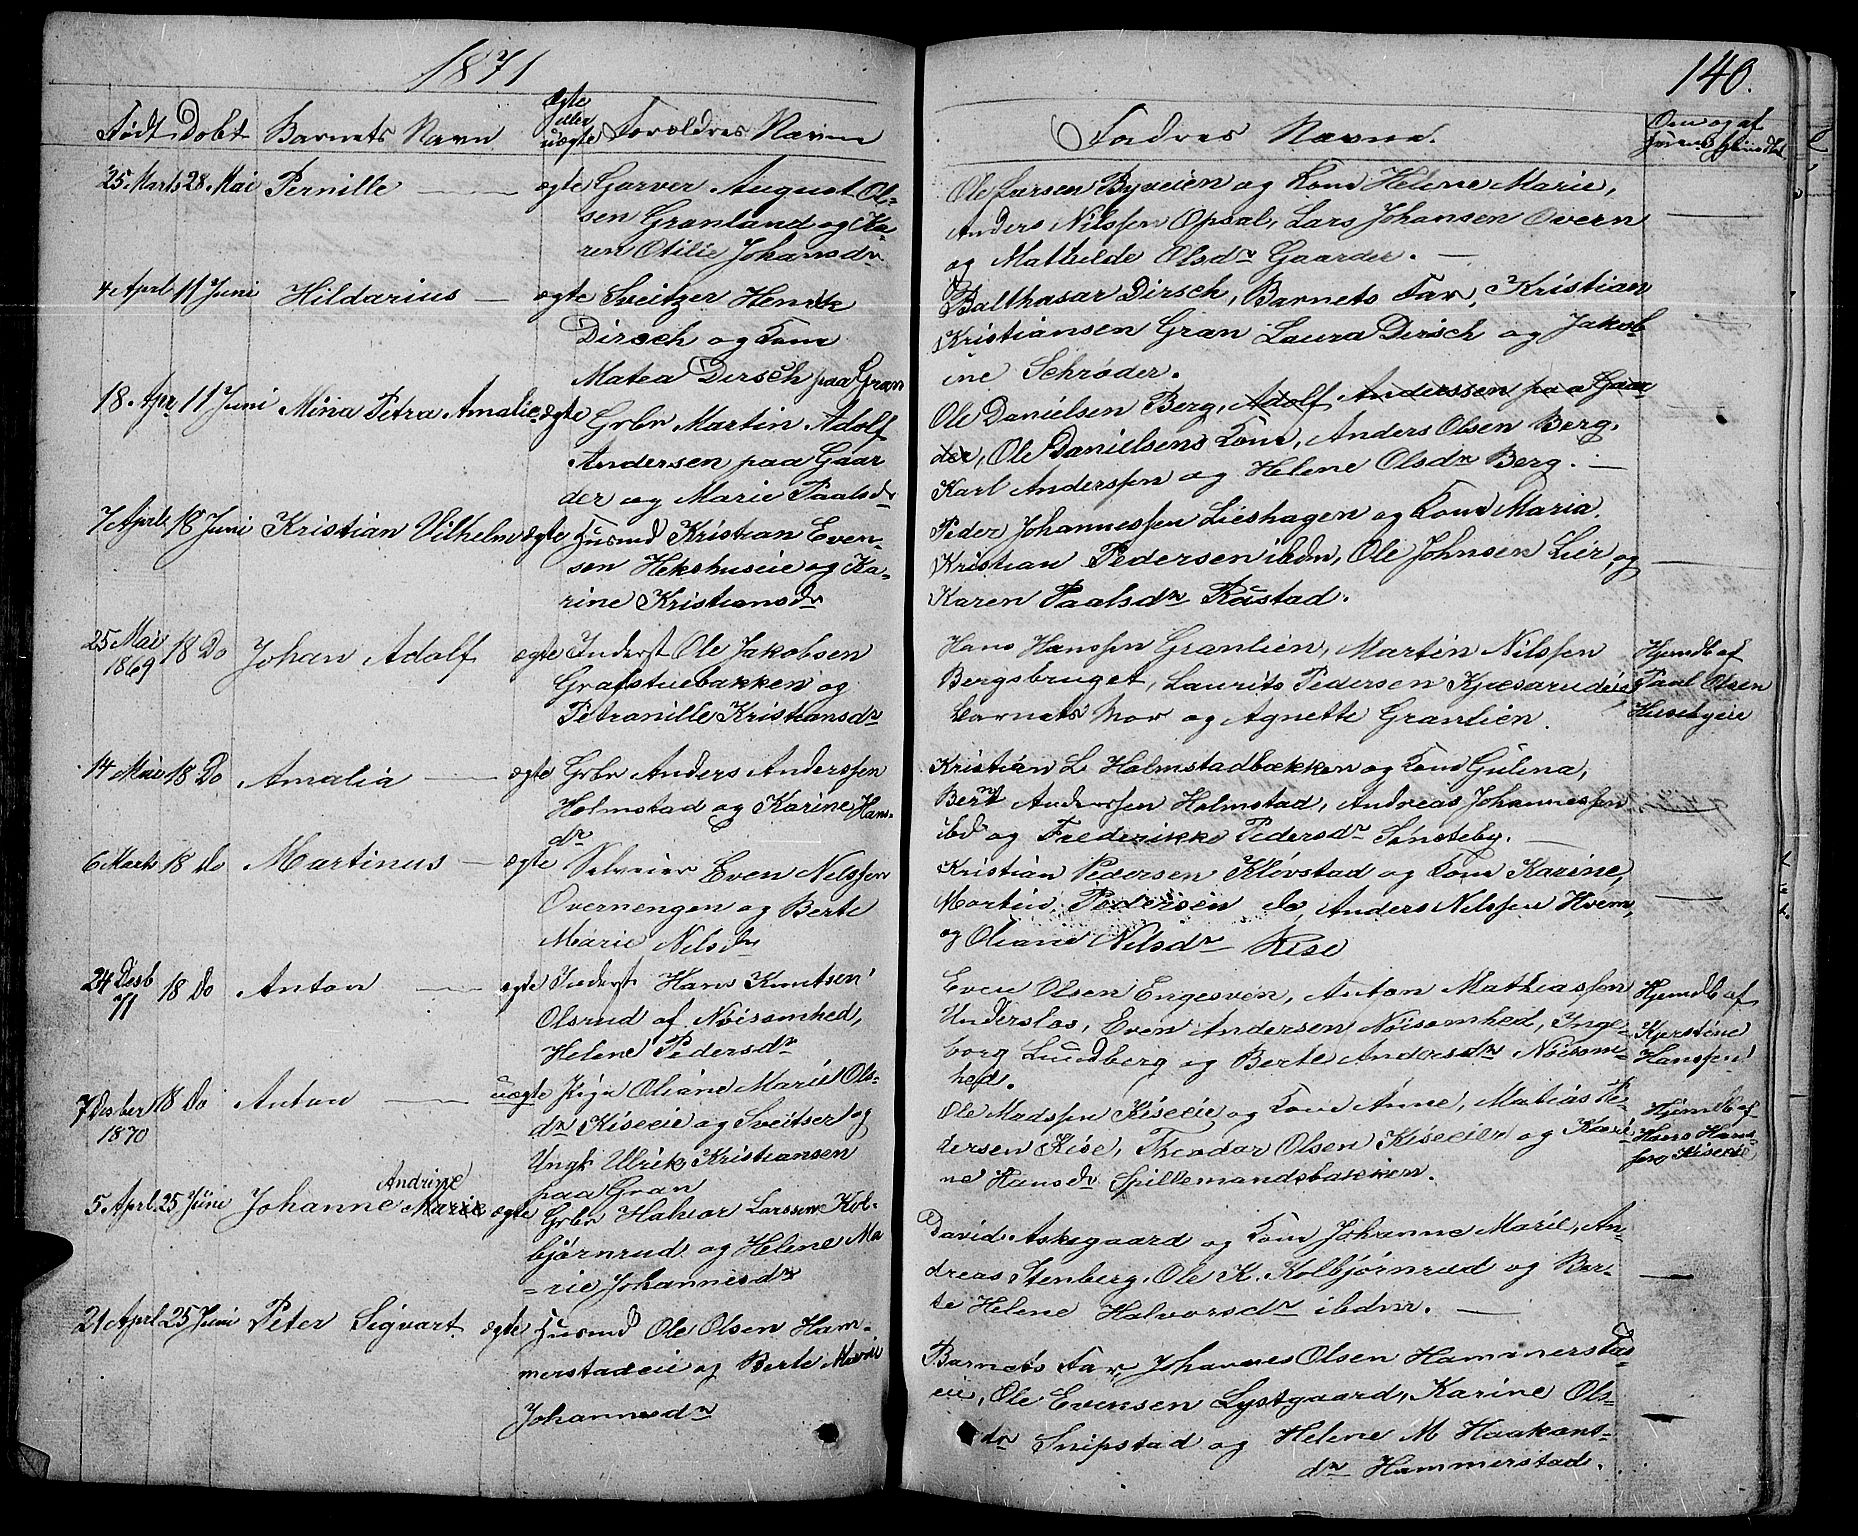 1871
140.
Født Døbt Barnets Navn Ægte eller uægte Forældres Navne
Fadres Navne. Om og af hvem hjemdøbt
25 Marts 28 Mai Pernille — ægte Garver August Ol-
sen Grønland og Ka-
ren Otilie Johansdr
Ole Larsen Byveien og Kone Helene Marie,
Anders Nilssen Opsal, Lars Johansen Overn
og Mathilde Olsdr Gaarder. —
4 April 11 Juni Hildarius — ægte Sveitzer Henrik
Dirsch og Kone
Matea Dirsch paa Gran
Balthasar Dirsch, Barnets Far, Kristian
Kristiansen Gran Laura Dirsch og Jakob-
ine Schrøder.
18 Apr 11 Juni Mina Petra Amalie ægte Grbr Martin Adolf
Andersen paa Gaar
der og Marie Paalsdr
Ole Danielsen Berg, Adolf Anderssen paa Gaar
der, Ole Danielsens Kone, Anders Olsen Berg,
Karl Anderssen og Helene Olsdr Berg. —
7 April 18 Juni Kristian Vilhelm ægte Husmd Kristian Even-
sen Hekshuseie og Ka-
rine Kristiansdr
Peder Johannessen Lieshagen og Kone Maria,
Kristian Pedersen ibdm, Ole Johnsen Lier, og
Karen Paalsdr Rustad.
25 Mai
1869 18 Do Johan Adolf ægte Inderst Ole Jakobsen
Grafstuebakken og
Petranille Kristiansdr
Hans Hanssen Granlien, Martin Nilssen
Bergsbruget, Laurits Pedersen Kjæsarudeie,
Barnets Mor og Agnette Granlien.
Hjemdb af
Paul Olsen
Husebyeie
14 Mai 18 Do Amalia — ægte Grbr Anders Anderssen
Holmstad og Karine Hans-
dr
Kristian L Holmstadbækken og Kone Gulena,
Bernt Anderssen Holmstad, Andreas Johannessen
ibd og Frederikke Pedersdr Sønsteby. —
6 Marts 18 Do Martinus — ægte Selveier Even Nilssen
Overnengen og Berte
Marie Nilsdr
Kristian Pedersen Kløvstad og Kone Karine,
Martin Pedersen do, Anders Nilssen Hvem,
og Oliane Nilsdr Kise
24 Desb
71 18 Do Anton — ægte Inderst Hans Knutsen
Olsrud af Nøisomhed,
Helene Pedersdr
Even Olsen Engesven, Anton Mathiassen
Underslos, Even Andersen Nøisomhed, Inge-
borg Lundberg og Berte Andersdr Nøisom-
hed.
Hjemdb af
Kjerstine
Hanssen
7 Desber
1870 18 Do Anton — uægte Pige Oliane Marie Ols-
dr Kiseeie og Sveitser og
Ungk Ulrik Kristiansen
paa Gran
Ole Madssen Kiseeie og Kone Anne, Matias Pe-
dersen Kise, Theodor Olsen Kiseeie og Kari-
ne Hansdr Spillemandsbakken.
Hjemdb af
Hans Hans-
sen Kiseeie
5 April 25 Juni Johanne Marie Andrine ægte Grbr Halvor Larssen Kol-
bjørnrud og Helene Ma
-rie Johannesdr
David Askgaard og Kone Johanne Marie, An-
dreas Stenberg, Ole K. Kolbjørnrud og Ber-
te Helene Halvorsdr ibdm. —
21 April 25 Juni Peter Sigvart ægte Husmd Ole Olsen Ham-
merstadeie og Berte Marie
Johannesdr
Barnets Far, Johannes Olsen Hammerstad-
eie, Ole Evensen Lystgaard, Karine Ols-
dr Snipstad og Helene M Haakons-
dr Hammerstad.